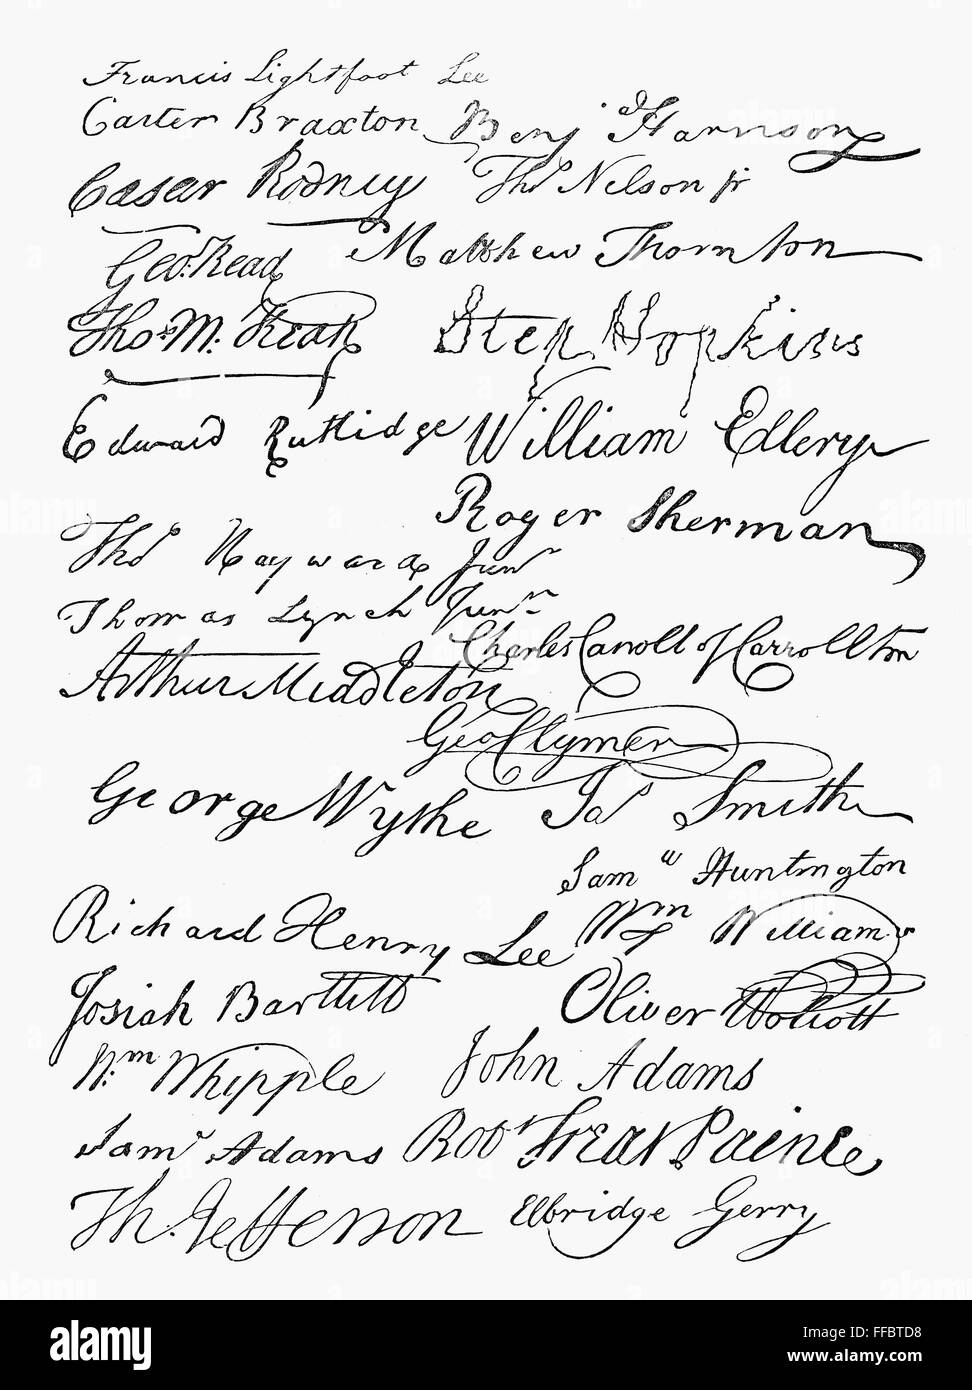 Francis Lightfoot Lee
Carter Braxton Benj Harrison
Caesar Rodney Thos Nelson jr
Geo. Read Matthew Thornton
Tho. M. Kean Step Hopkins
Edward Rutlidge William Ellery
Roger Sherman
Thos Hayward Junr
Thomas Lynch Junr
Charles Carroll of Carrollton
Arthur Middleton
Geo Clymer
George Wythe Jas Smith
Saml Huntington
Richard Henry Lee Wm Williams
Josiah Bartlett Oliver Wolcott
Wm Whipple John Adams
Saml Adams Robt Treat Paine
Th. Jefferson Elbridge Gerry
alamy
Image ID: FFBTD8
www.alamy.com